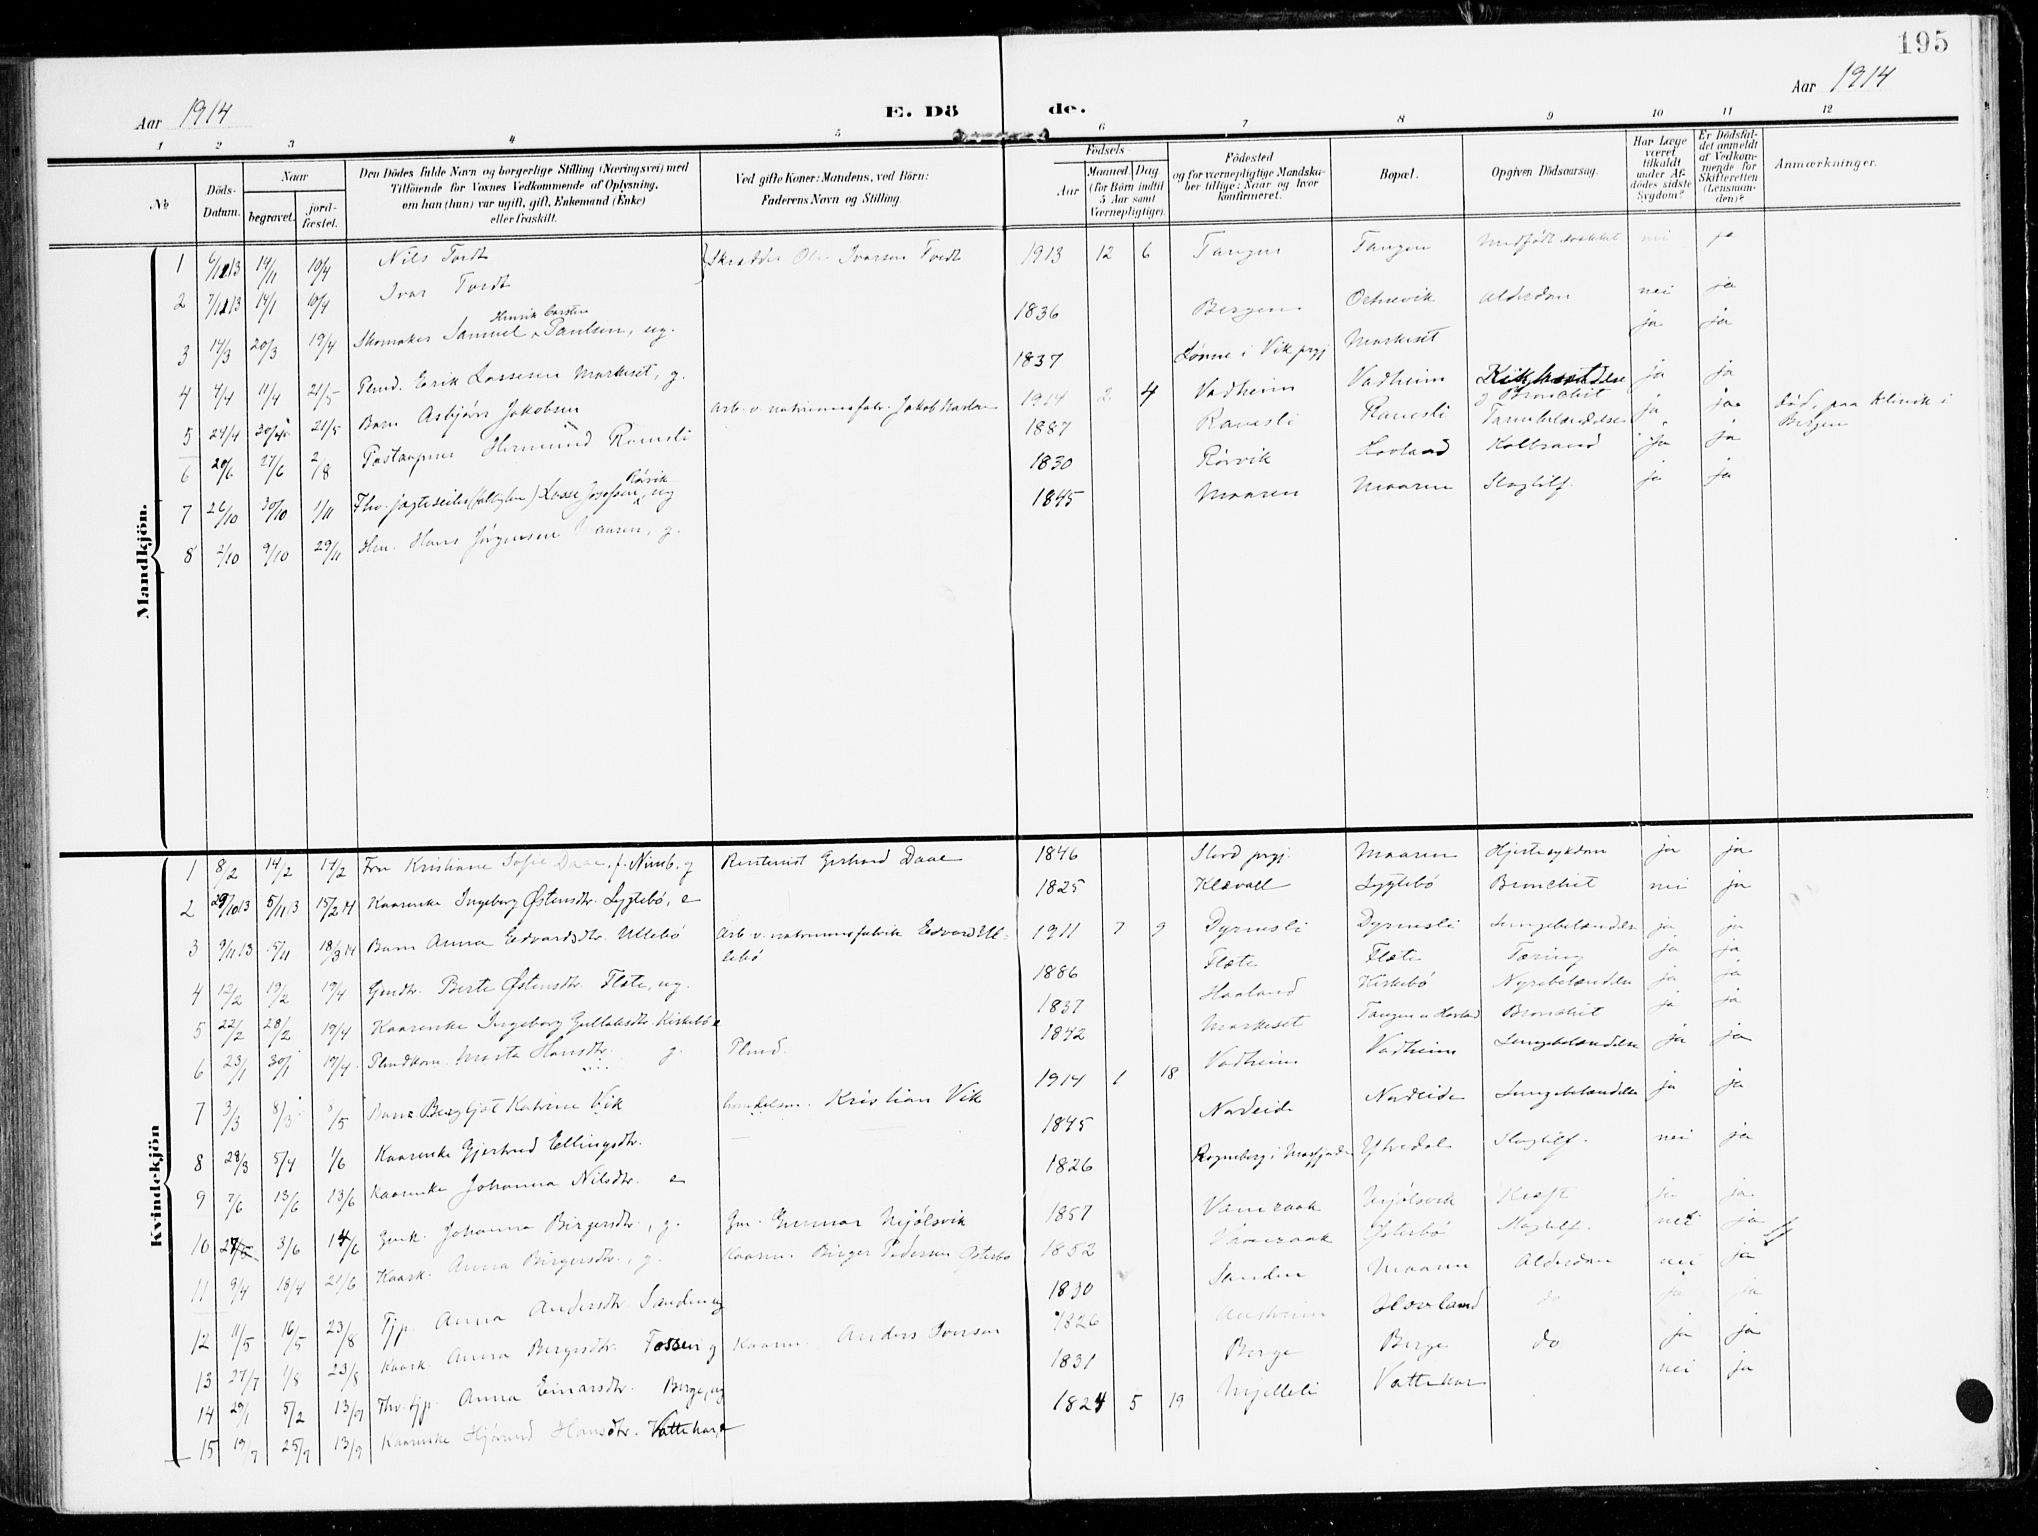 195
Aar 1914
E. Dö de.
Aar 1914
1 2 3 4 5 6 7 8 9 10 11 12
No
Döds-Datum.
Naar
begravet.
jord-fæstet.
Den Dödes fulde Navn og borgerlige Stilling (Næringsvei) med
Tilföiende for Voxnes Vedkommende af Oplysning,
om han (hun) var ugift, gift, Enkemand (Enke)
eller fraskilt.
Ved gifte Koner: Mandens, ved Börn:
Faderens Navn og Stilling.
Födsels-
Aar
Maaned Dag
(for Börn indtil
5 Aar samt
Værnepligtige).
Födested
og for værnepligtige Mandska-
ber tillige: Naar og hvor
konfirmeret.
Bopæl.
Opgiven Dödsaarsag.
Har Læge
været
tilkaldt
under Af-
dödes sidste
Sygdom?
Er Dödsfal-
det anmeldt
af Vedkom-
mende for
Skifteretten
(Lensman-
den)?
Anmærkninger.
Mandkjön.
1 14/1 19/4 Nils Tordt Skrædder Ole Ivarsen Tordt 1913 12 6 Tangen Tangen Medfödt svakhet nei ja
2 14/1 19/4 Ivar Tordt 1836 Bergen Ortnevik Alderdom nei ja
3 14/3 20/3 19/4 Skomaker Samuel Henrik Carsten Paulsen, ug. 1837 Lønne i Vik prgj Maskeset ja ja
4 4/4 11/4 21/5 Plmd. Erik Lassesen Maskeset, g. 1914 2 4 Vadheim Vadheim Kikhoste og Bronchit ja ja
5 24/4 21/5 Barn Asbjørn Jakobsen Arb. v. natriumsfabr. Jakob 1887 Ravnsli Ravnsli Tarmbetændelse ja ja død paa Klinik i Bergen
6 20/6 27/6 2/8 Postaapner Hermund Ravnsli 1830 Rörvik Hovland Kolbrand ja ja
7 26/10 30/10 1/11 Fhv. jagteseiler Lasse Josefsen Rörvik, ug 1845 Maaren Maaren Slagtilf. ja ja
8 2/10 9/10 29/11 Hm. Hans Jørgensen Maaren, g.
Kvindekjön
1 8/2 14/2 14/2 Fru Kristiane Sofie Daae, f. Nimb. g Rentenist Gerhard Daae 1846 Stord prgj. Maaren Hjertesygdom ja ja
2 29/10 13 5/11 13 15/2 14 Kaarenke Ingeborg Østensdtr. Lyglebö, e 1825 Klævold Lyglebö Bronchit nei ja
3 9/11 13 15/11 18/3 14 Barn Anna Edvardsdtr. Ullebö Arb. v. natriumsfabrik Edvard Ullebö 1911 7 9 Dyrnesli Dyrnesli Lungebetændelse ja ja
4 12/2 19/2 19/4 Gmdtr. Berte Østensdtr. Flete, ug. 1886 Flete Flete Tæring ja ja
5 22/2 28/2 19/4 Kaarenke Ingeborg Gullaksdtr. Kirkebö e 1837 Haaland Kirkebö Nyrebetændelse ja ja
6 23/1 30/1 19/4 Plmdkone Marta Hansdtr. g. Plmd. 1842 Maskeset Tangen u Hovland Bronchit ja ja
7 3/3 8/3 /5 Barn Bergljot Katrine Vik Kristian Vik 1914 1 18 Vadheim Vadheim Lungebetændelse ja ja
8 28/3 5/4 1/6 Kaarenke Gjertrud Ellingsdtr. 1845 Nordeide Nordeide Lungebetændelse ja ja
9 7/6 13/6 13/6 Kaarenke Johanna Nilsdtr. e 1826 Rogneberg i Masfjorden Ytredal Slagtilf. nei ja
10 27/5 3/6 14/6 Gmk. Johanna Birgersdtr., g. Gm. Gunnar Mjölsvik 1857 Vamraak Mjölsvik Kræft ja ja
11 9/4 18/4 21/6 Kaark. Anna Birgersdtr., g. Kaarm. Birger Pedersen Österbö 1852 Vamraak Österbö Slagtilf. nei ja
12 11/5 16/5 23/8 Tjp. Anna Andersdtr. Sanden ug 1830 Sanden Maaren Alderdom nei ja
13 27/7 1/8 23/8 Kaark. Anna Bergesdtr. Fossen g Kaarm. Anders Iversen 1826 Hovland do ja ja
14 29/1 5/2 13/9 Fhv. tjp. Anna Einarsdtr. Berge, ug 1831 Berge Berge do ja ja
15 19/7 25/7 13/9 Kaarenke Hjörund Hansdtr. Vattekar, e 1824 5 19 Mjelleli Vattekar nei ja